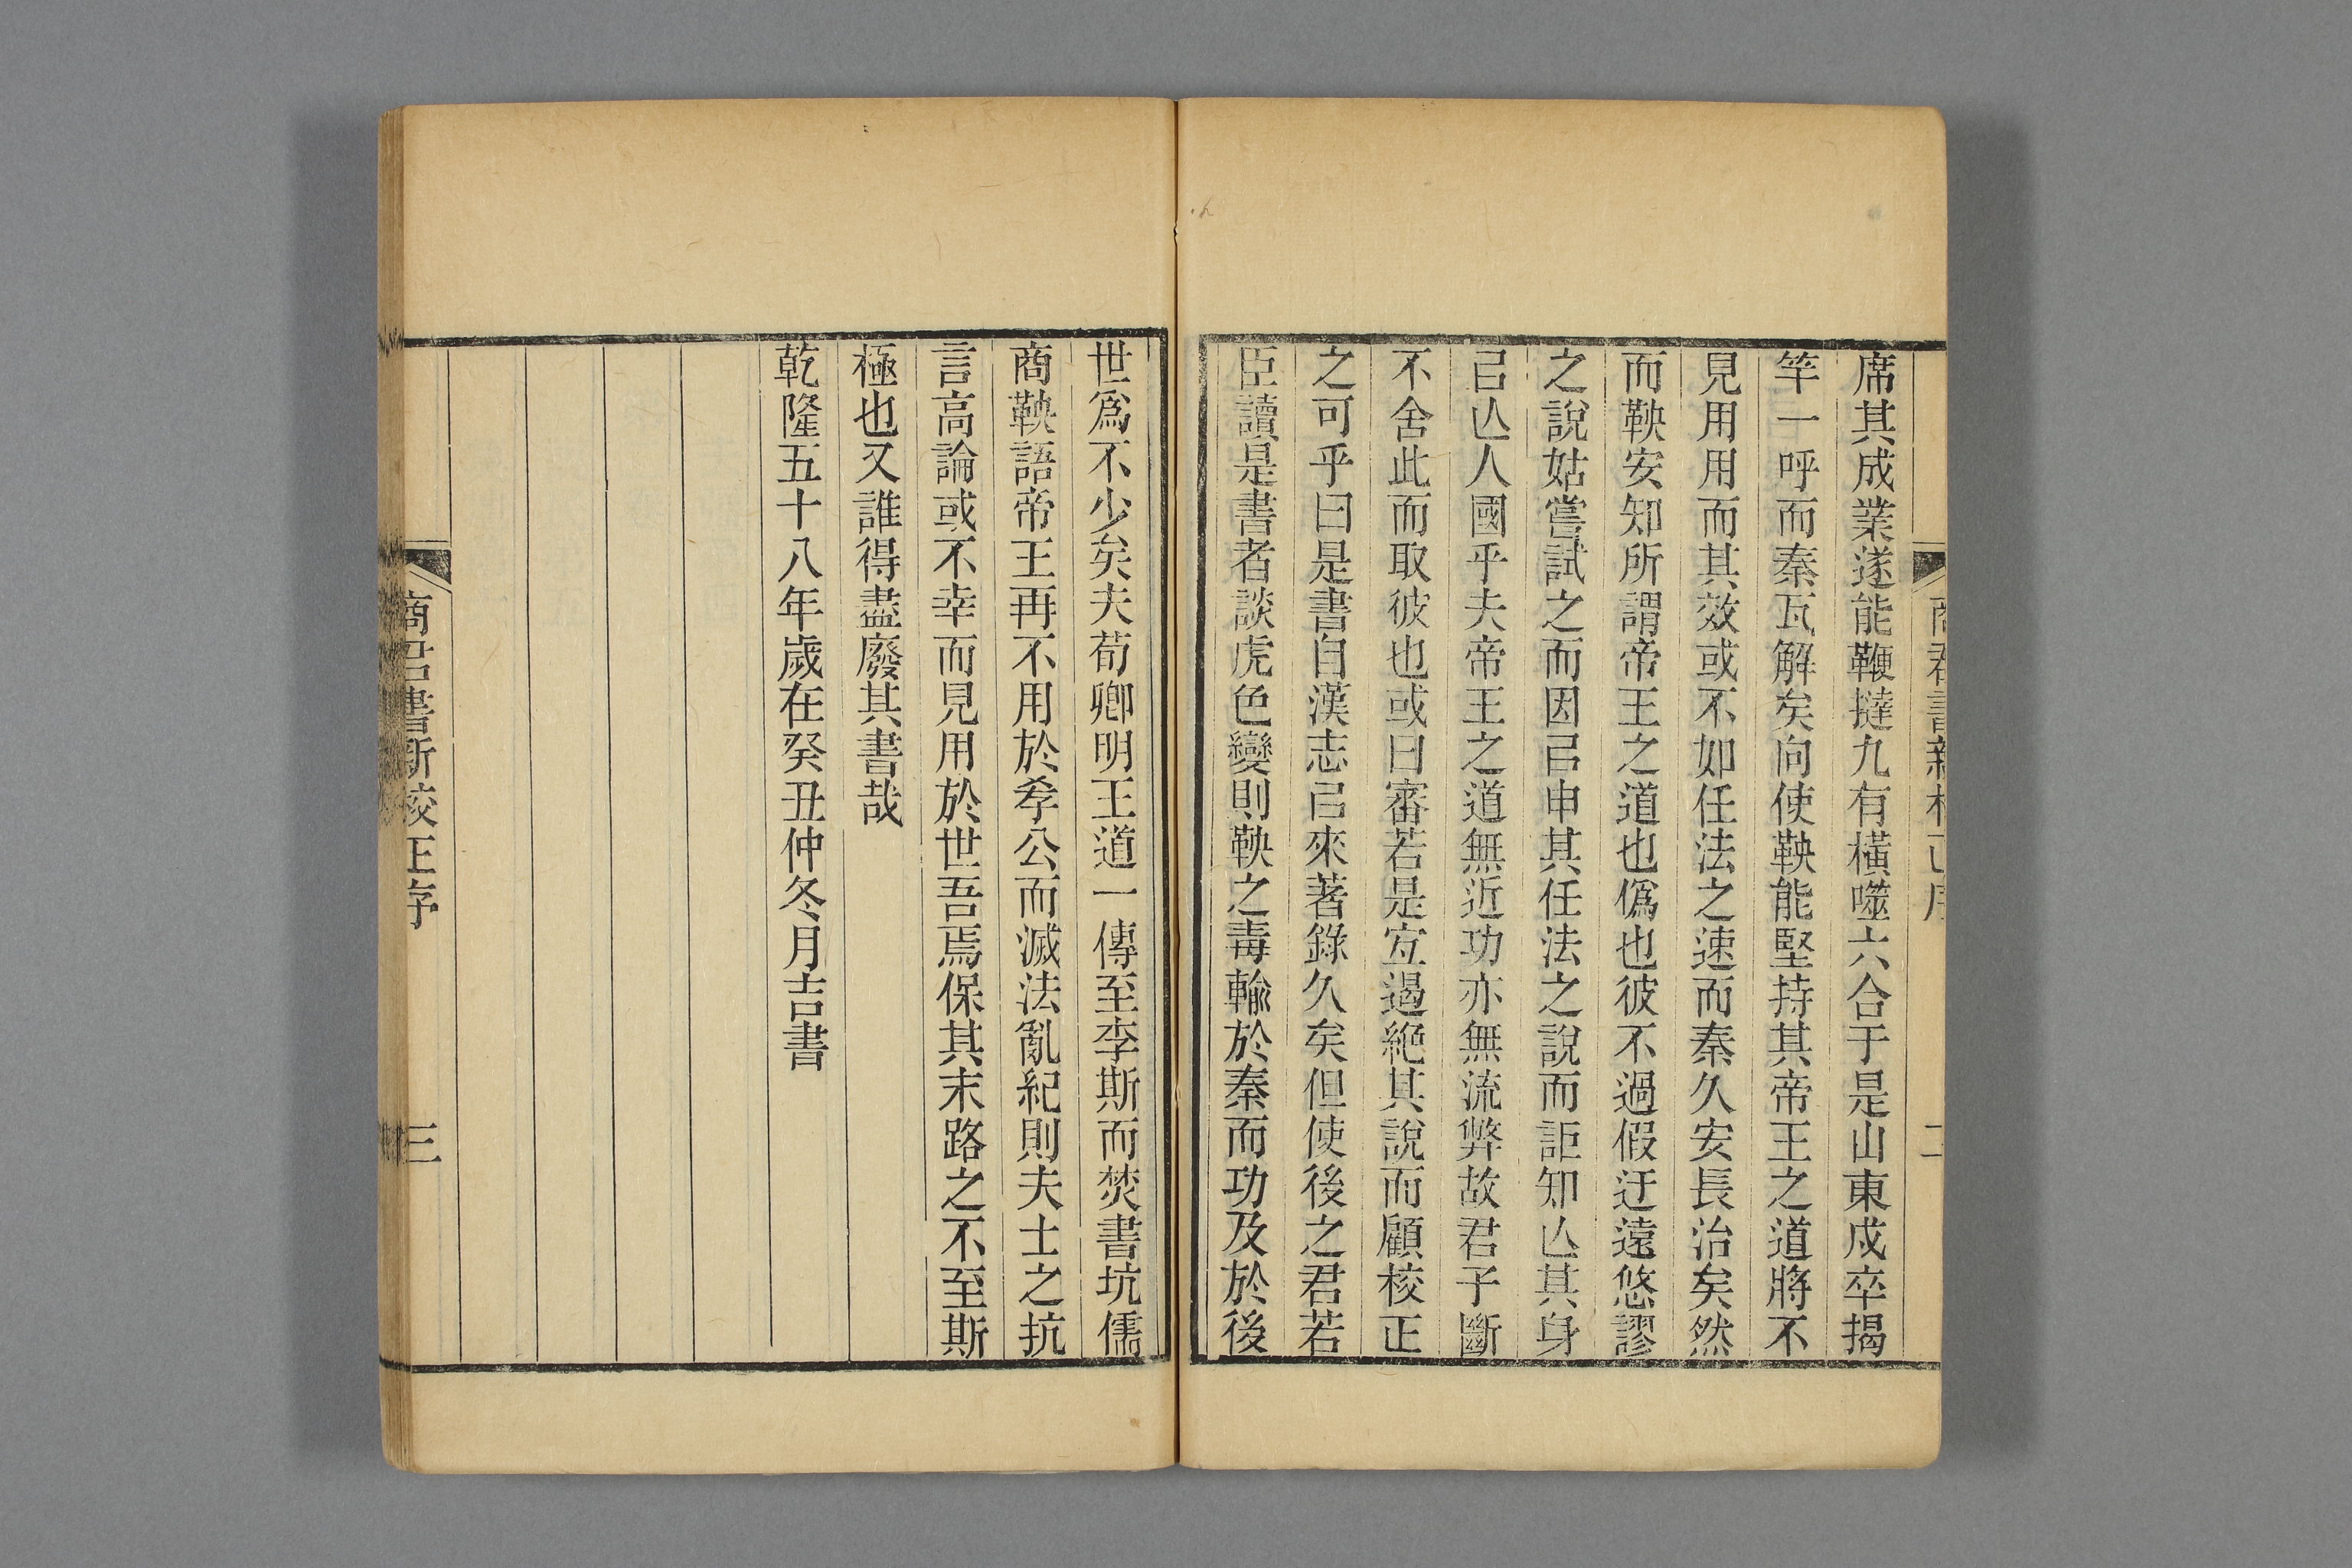 商君書新校正序
二
席其成業遂能鞭撻九有橫噬六合于是山東戍卒揭
竿一呼而秦瓦解矣向使鞅能堅持其帝王之道將不
見用用而其效或不如任法之速而秦久安長治矣然
而鞅安知所謂帝王之道也僞也彼不過假迂遠悠謬
之說姑嘗試之而因㠯申其任法之說而詎知亾其身
㠯亾人國乎夫帝王之道無近功亦無流弊故君子斷
不舍此而取彼也或曰審若是宐遏絶其說而顧校正
之可乎曰是書自漢志㠯來著錄久矣但使後之君若
臣讀是書者談虎色變則鞅之毒輸於秦而功及於後
世爲不少矣夫荀卿明王道一傳至李斯而焚書坑儒
商鞅語帝王再不用於孝公而滅法亂紀則夫士之抗
言高論或不幸而見用於世吾焉保其末路之不至斯
極也又誰得盡廢其書哉
乾隆五十八年歲在癸丑仲冬月吉書
商君書新校正序
三